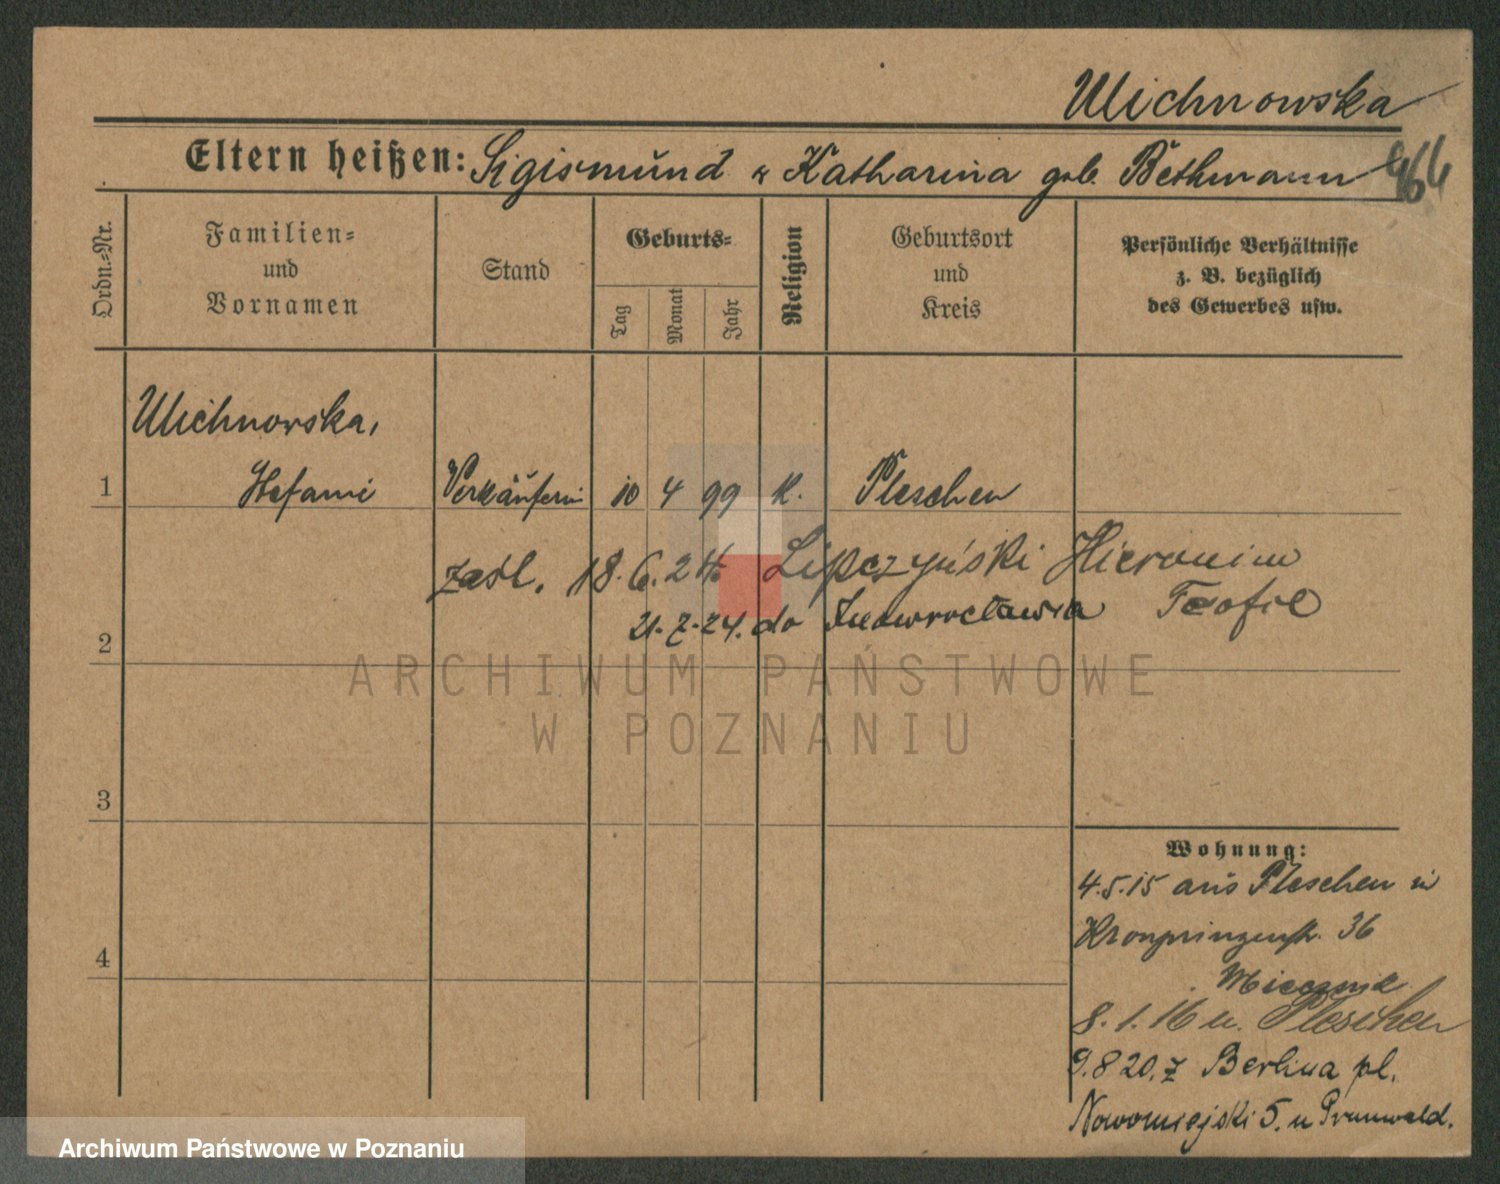 Michnowska
Eltern heißen: Sigismund u Katharina geb. Bethmann
Ordn.-Nr.
Familien-
und
Vornamen
Stand
Geburts-
Tag
Monat
Jahr
Religion
Geburtsort
und
Kreis
Persönliche Verhältnisse
z. B. bezüglich
des Gewerbes usw.
Michnowska,
1 Stefanie Verkäuferin 10 4 99 k. Pleschen
zaśl. 18.6.24 Lipczyński Hieronim
Teofil
21.7.24. do Inowrocławia
2
3
4
Wohnung:
4.5.15 aus Pleschen in
Kronprinzenstr. 36
8.1.16 n. Pleschen
9.8 20. z Berlina pl.
Nowomiejski 5. u
ARCHIWUM PAŃSTWOWE
W POZNANIU
Archiwum Państwowe w Poznaniu